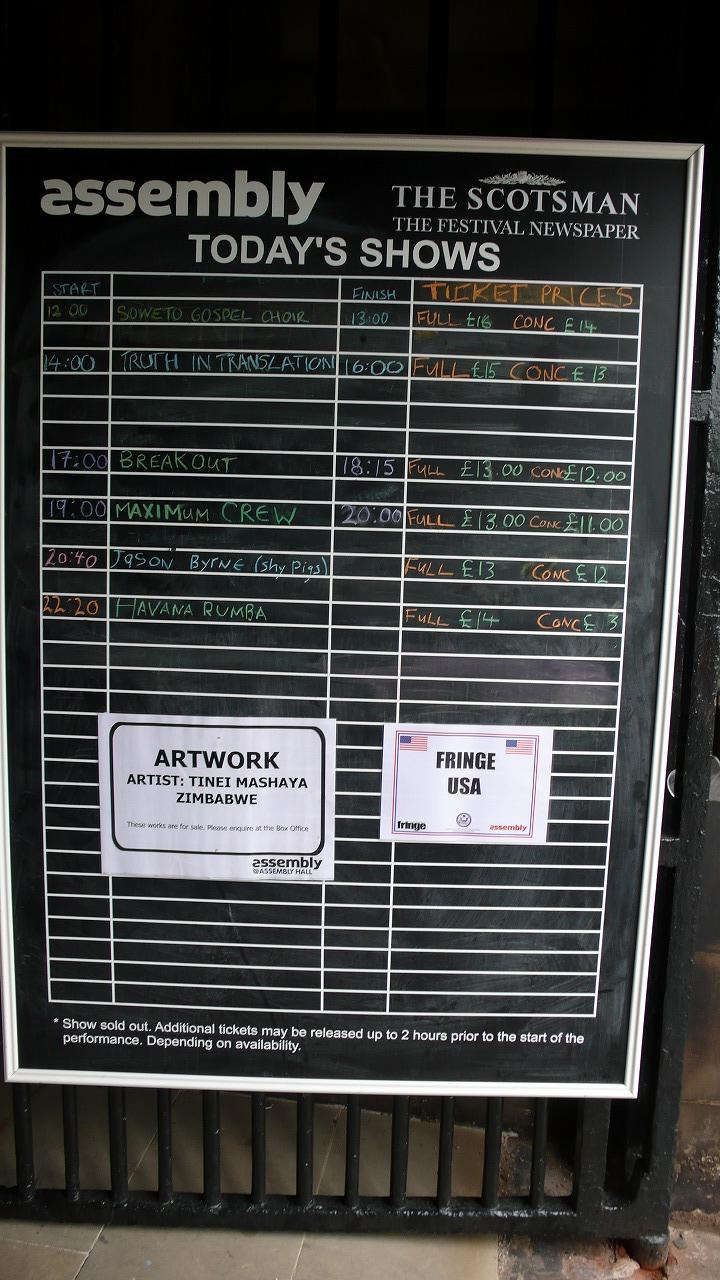 assembly THE SCOTSMAN
THE FESTIVAL NEWSPAPER
TODAY'S SHOWS
START FINISH TICKET PRICES
12:00 SOWETO GOSPEL CHOIR 13:00 FULL £16 CONC £14
14:00 TRUTH IN TRANSLATION 16:00 FULL £15 CONC £13
17:00 BREAKOUT 18:15 FULL £13.00 CONC £12.00
19:00 MAXIMUM CREW 20:00 FULL £13.00 CONC £11.00
20:40 JASON BYRNE (Shy Pigs) FULL £13 CONC £12
22:20 HAVANA RUMBA FULL £14 CONC £ 3
ARTWORK
ARTIST: TINEI MASHAYA
ZIMBABWE
These works are for sale. Please enquire at the Box Office
assembly
@ASSEMBLY HALL
FRINGE
USA
fringe assembly
* Show sold out. Additional tickets may be released up to 2 hours prior to the start of the
performance. Depending on availability.